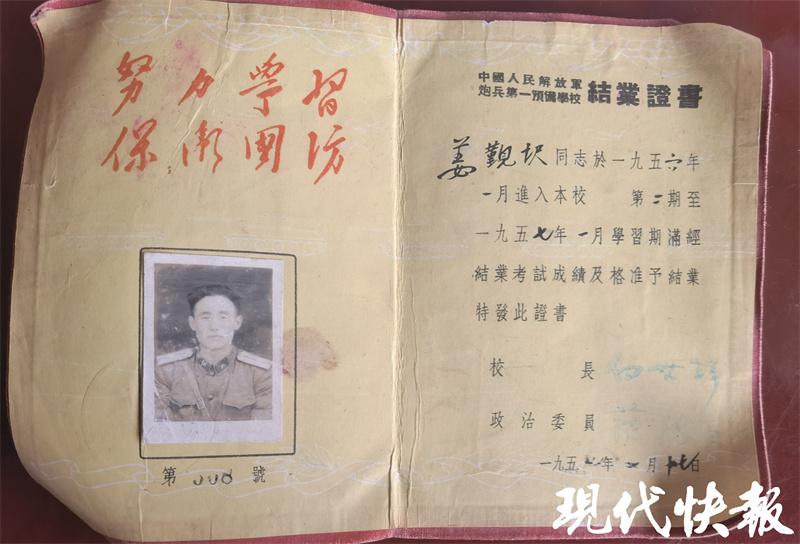 努力學習
保衛國防
第 號
中國人民解放軍
炮兵第一預備學校 結業證書
姜觀 同志於一九五六年
一月進入本校 第二期至
一九五七年一月學習期滿經
結業考試成績及格准予結業
特發此證書
校 長
政治委員
一九五 年 月 日
現代快報